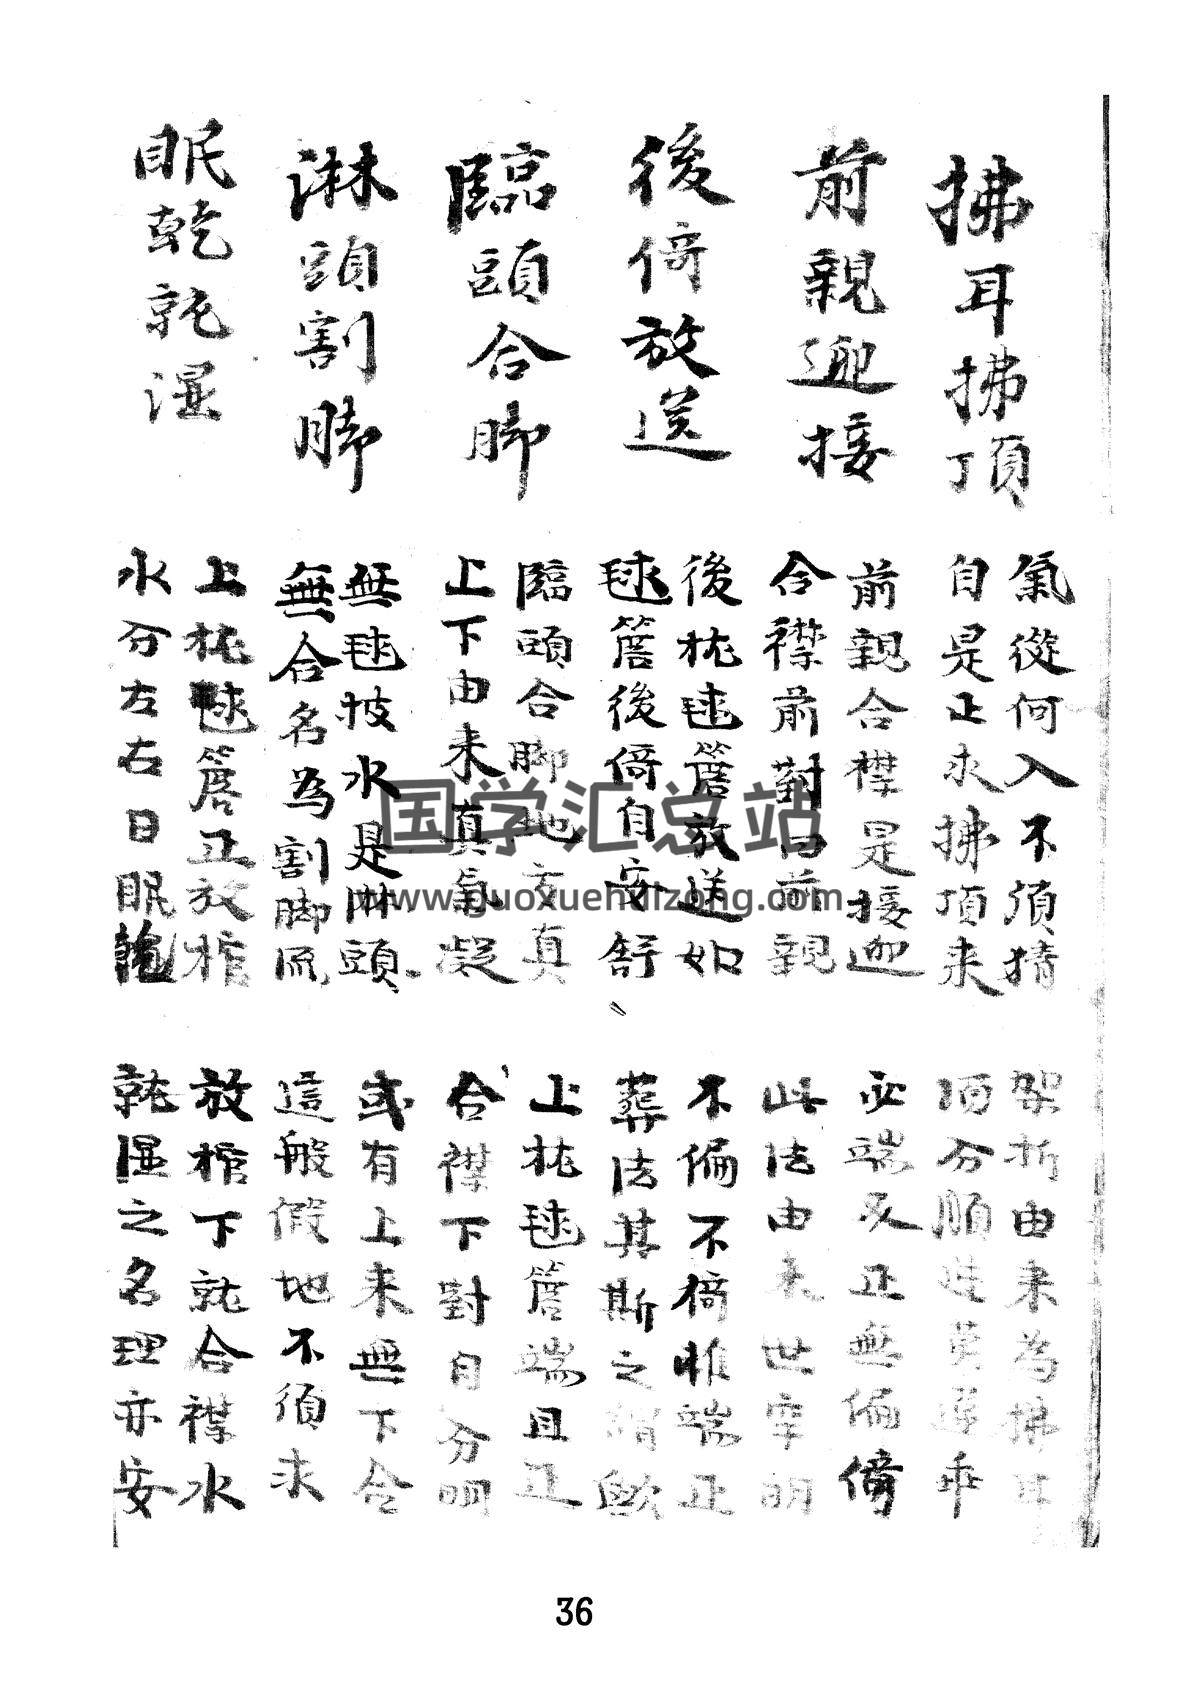 拂耳拂頂
氣從何入不須猜
架折由来為拂耳
自是正求拂頂来
須分順逆莫違乖
前親迎接
前親合襟是接迎
必端必正無偏倚
合襟前對曰前親
此法由来世罕明
後倚放送
後枕毬簷放送如
不偏不倚惟端正
毬簷後倚自安舒
葬法其斯之謂歟
臨頭合脚
臨頭合脚地方真
上枕毬簷端且正
上下由来真氣凝
合襟下對自分明
淋頭割脚
無毬披水是淋頭
或有上来無下合
無合名為割脚流
這般假地不須求
眠乾就湿
上枕毬簷正放棺
放棺下就合襟水
水分左右曰眠乾
就湿之名理亦安
国学汇总站
www.guoxuehuizong.com
36